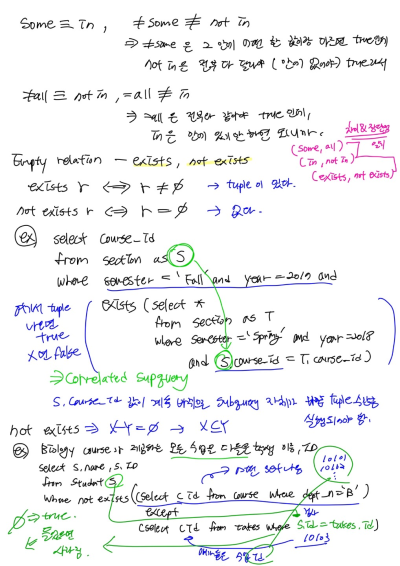 Some ≡ In ,   ≠Some ≢ not in
⇒ ≠some 은 그 안에 어떤 한 값이랑 다르면 true인데
not in은 전부 다 달라야 (안에 없어야) true라서
≠all ≡ not in , =all ≢ in
⇒ =all 은 전부와 같아야 true 인데,
in은 안에 있기만 하면 되니까.
(some, all)
(in, not in)
(exists, not exists)
Empty relation – exists, not exists
exists r ⟺ r ≠ ∅ → tuple이 있다.
not exists r ⟺ r = ∅ → 없다.
ex) select course_id
from section as S
where semester = 'Fall' and year = 2017 and
exists (select *
from section as T
where semester = 'Spring' and year=2018
and S.course_id = T.course_id)
tuple
true
X면 false
⇒ Correlated Subquery
S.course_id 값이 계속 바뀌면 Subquery tuple
not exists ⇒ X-Y=∅ → X⊆Y
ex) Biology course가 제공하는 모든 수업을 다 들은 학생 이름, ID
select S.name, S.ID
from Student S
where not exists ((select cid from course where dept_n='B')
except
(select cid from takes where S.id = takes.id)
10101
10102
⋮
10103
∅ ⇒ true.